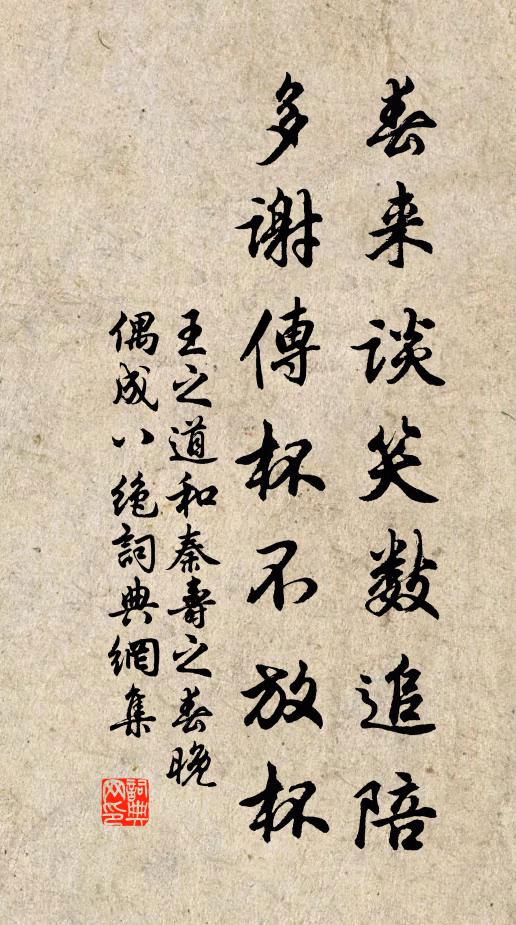 春来談笑數追陪
多謝傳杯不放杯
王之道和秦壽之春晚
偶成八絶詞典網集
詞典
网印